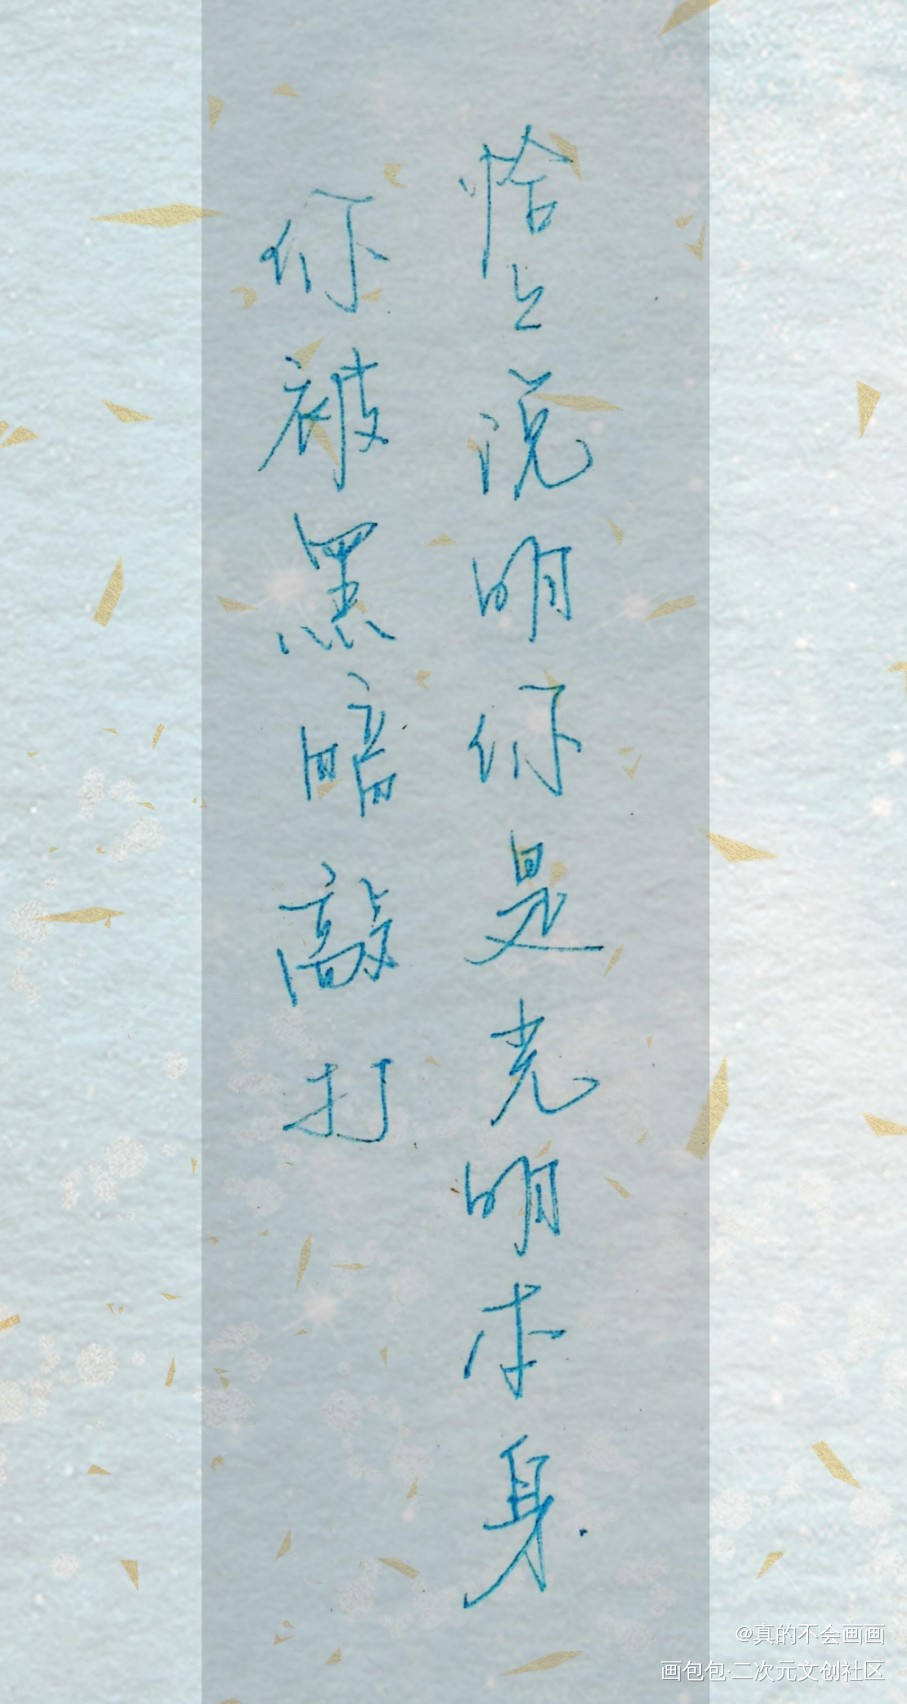 你被黑暗敲打
恰々说明你是光明本身.
@真的不会画画
画包包·二次元文创社区